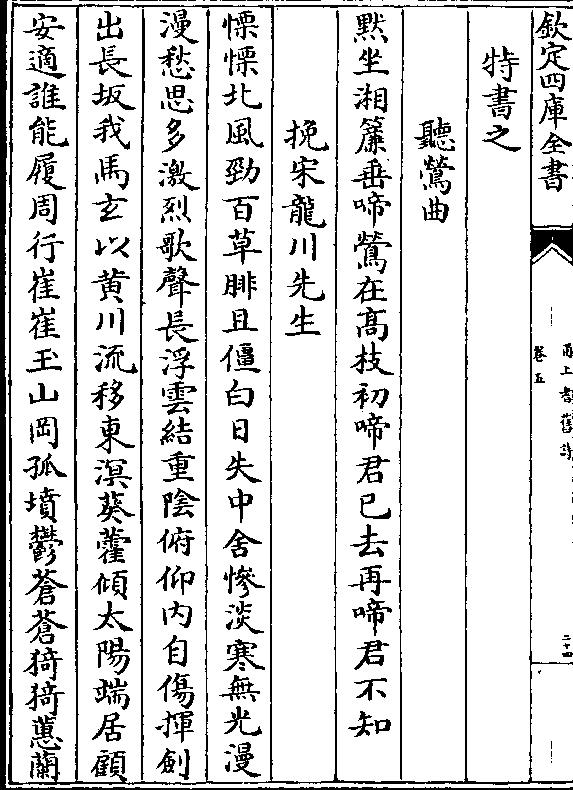 欽定四庫全書
卷五
二十四
特書之
聽鶯曲
默坐湘簾垂啼鶯在髙枝初啼君已去再啼君不知
挽宋龍川先生
慄慄北風勁百草腓且僵白日失中舍慘淡寒無光漫
漫愁思多激烈歌聲長浮雲結重陰俯仰内自傷揮劍
出長坂我馬玄以黄川流移東溟葵藿傾太陽端居顧
安適誰能履周行崔崔玉山岡孤墳鬱蒼蒼猗猗蕙蘭